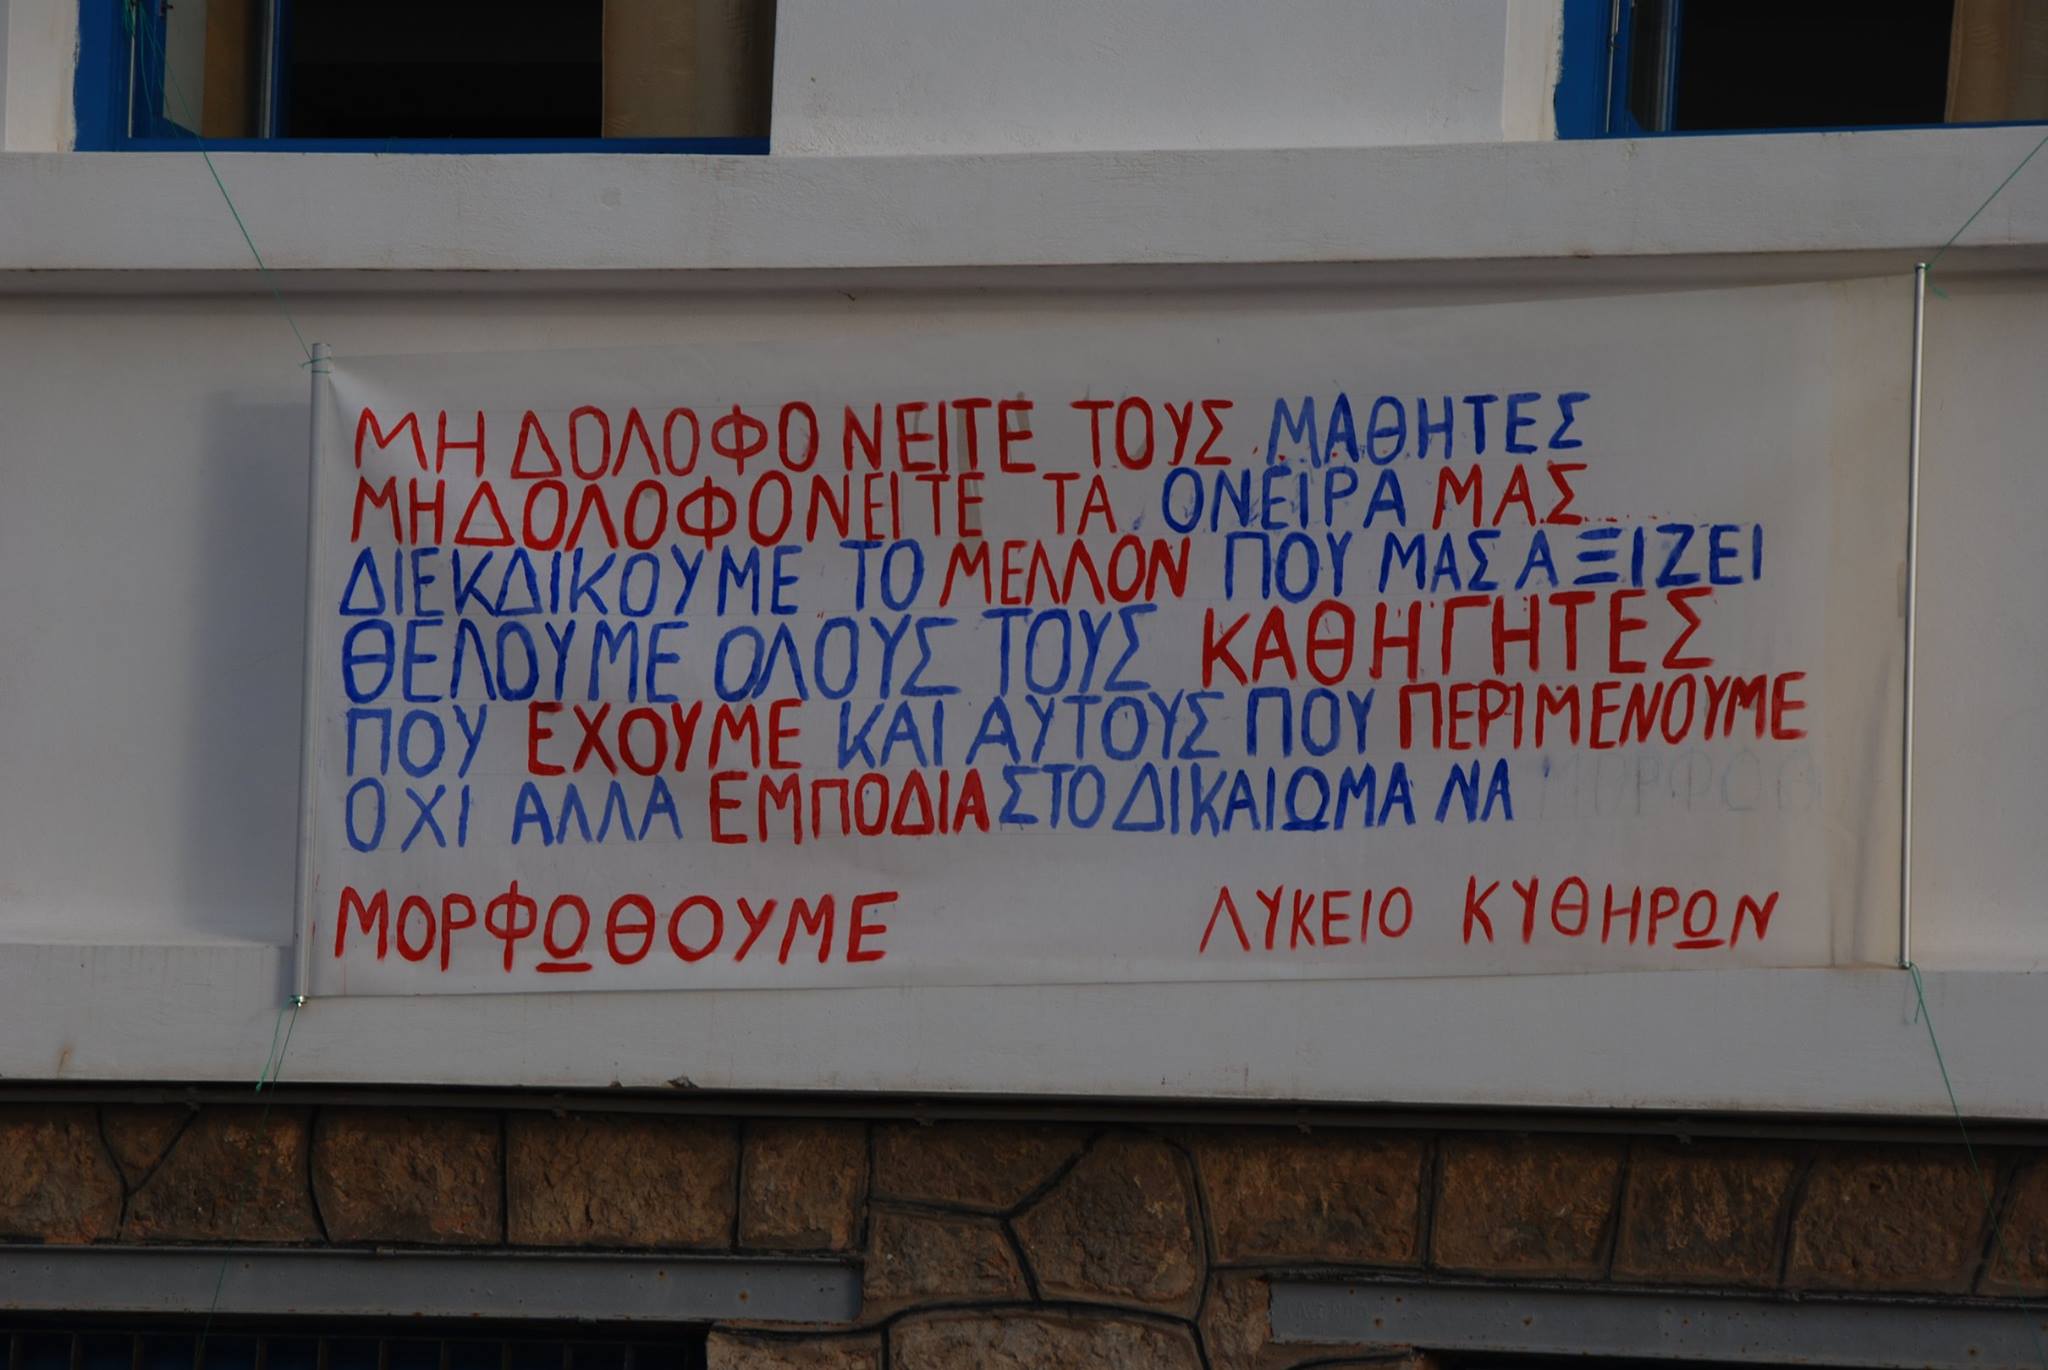 ΜΗ ΔΟΛΟΦΟΝΕΙΤΕ ΤΟΥΣ ΜΑΘΗΤΕΣ
ΜΗ ΔΟΛΟΦΟΝΕΙΤΕ ΤΑ ΟΝΕΙΡΑ ΜΑΣ
ΔΙΕΚΔΙΚΟΥΜΕ ΤΟ ΜΕΛΛΟΝ ΠΟΥ ΜΑΣ ΑΞΙΖΕΙ
ΘΕΛΟΥΜΕ ΟΛΟΥΣ ΤΟΥΣ ΚΑΘΗΓΗΤΕΣ
ΠΟΥ ΕΧΟΥΜΕ ΚΑΙ ΑΥΤΟΥΣ ΠΟΥ ΠΕΡΙΜΕΝΟΥΜΕ
ΟΧΙ ΑΛΛΑ ΕΜΠΟΔΙΑ ΣΤΟ ΔΙΚΑΙΩΜΑ ΝΑ
ΜΟΡΦΩΘΟΥΜΕ ΛΥΚΕΙΟ ΚΥΘΗΡΩΝ